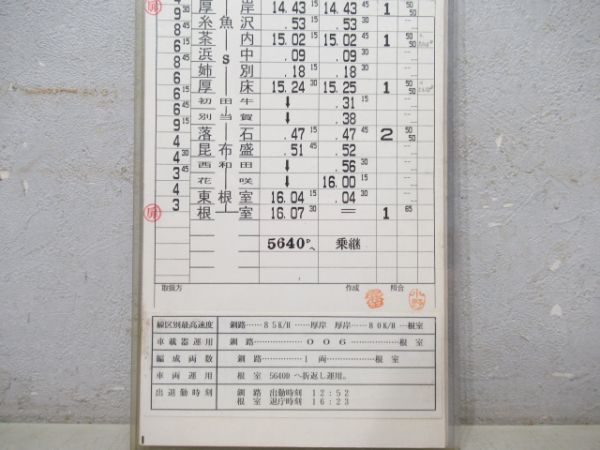 9 厚 岸 14.43 15 14.43 45 1 50 50
6 糸 魚 沢 .53 15 .53
8 茶 内 15.02 15 15.02 45 1 50 50
8 浜 中 .09 .09
6 姉 s 別 .18 15 .18
6 厚 床 15.24 30 15.25 1 50 50
6 初 田 牛 ↓ .31 15
6 別 当 賀 ↓ .38
9 落 石 .47 15 .47 45 2 50 50
4 昆 布 盛 .51 45 .52
4 西 和 田 ↓ .56 30
3 花 咲 ↓ 16.00 15
4 東 根 室 16.04 15 .04 30
3 根 室 16.07 30 = 1 65
5640Dへ 乗継
取扱方 作成 照合
線区別最高速度 釧路……85K/H……厚岸 厚岸……80K/H…根室
車載器運用 釧路………006………………根室
編成両数 釧路…………1両…………根室
車両運用 根室 5640D へ折返し運用。
出退勤時刻 釧路 出勤時刻 12:52
根室 退庁時刻 16:23